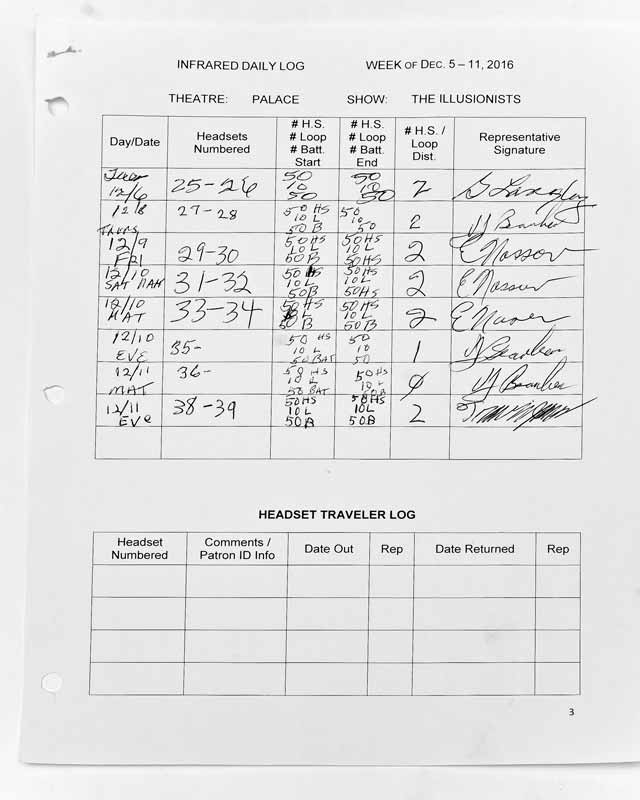 INFRARED DAILY LOG WEEK OF DEC. 5 – 11, 2016
THEATRE: PALACE SHOW: THE ILLUSIONISTS
Day/Date
Headsets
Numbered
# H.S.
# Loop
# Batt.
Start
# H.S.
# Loop
# Batt.
End
# H.S. /
Loop
Dist.
Representative
Signature
Tues
12/6
25-26
50
10
50
50
10
50
2
12/8
THURS
27-28
50 HS
10 L
50 B
50
10
50
2
12/9
FRI
29-30
50HS
10L
50B
50HS
10L
50HS
2
12/10
SAT MAT
31-32
50 HS
10 L
50B
50HS
10L
50HS
2
12/10
MAT
33-34
50HS
L
50 B
50HS
10L
50B
2
12/10
EVE
35-
50 HS
10 L
50 BAT
50
10
50
1
12/11
MAT
36-
50 HS
10 L
50 BAT
50HS
10L
0
12/11
EVE
38-39
50HS
10L
50B
50HS
10L
50B
2
HEADSET TRAVELER LOG
Headset
Numbered
Comments /
Patron ID Info
Date Out
Rep
Date Returned
Rep
3